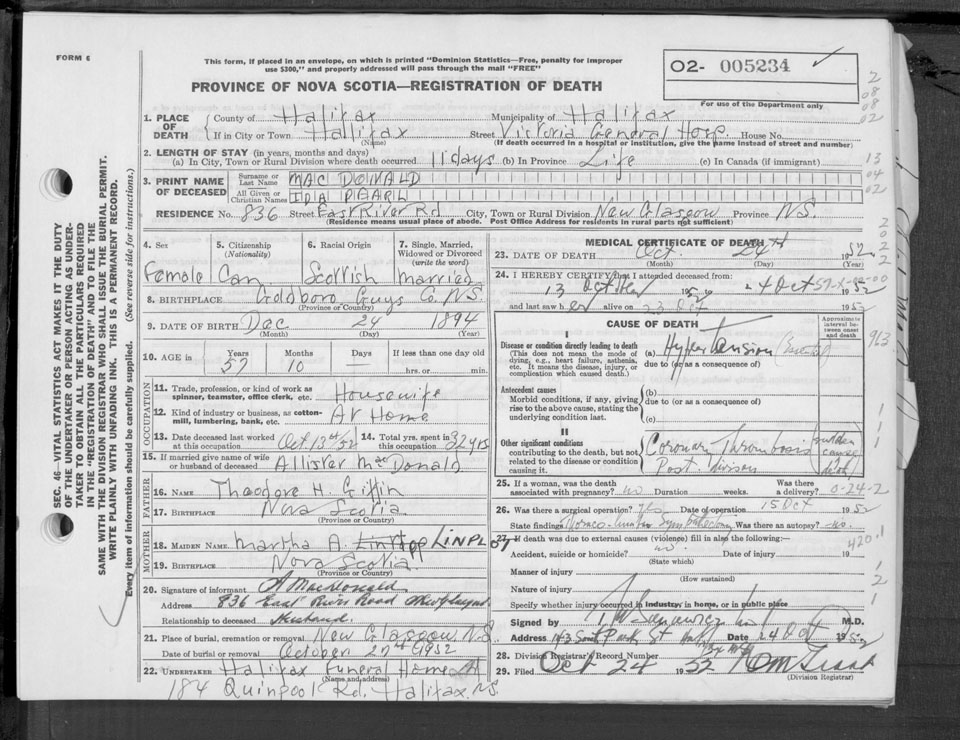 FORM 6
This form, if placed in an envelope, on which is printed "Dominion Statistics—Free, penalty for improper
use $300," and properly addressed will pass through the mail "FREE"
PROVINCE OF NOVA SCOTIA—REGISTRATION OF DEATH
O2- 005234
For use of the Department only
1. PLACE OF DEATH
County of Halifax Municipality of Halifax
If in City or Town Halifax Street Victoria General Hosp. House No.
(Name) (If death occurred in a hospital or institution, give the name instead of street and number)
2. LENGTH OF STAY (in years, months and days)
(a) In City, Town or Rural Division where death occurred 11 days (b) In Province Life (c) In Canada (if immigrant)
3. PRINT NAME OF DECEASED
Surname or Last Name MAC DONALD
All Given or Christian Names IDA PEARL
RESIDENCE No. 836 Street East River Rd City, Town or Rural Division New Glasgow Province N.S.
(Residence means usual place of abode. Post Office Address for residents in rural parts not sufficient)
4. Sex Female
5. Citizenship (Nationality) Can.
6. Racial Origin Scottish
7. Single, Married, Widowed or Divorced (write the word) married
8. BIRTHPLACE Goldboro Guys Co. N.S.
(Province or Country)
9. DATE OF BIRTH Dec 24 1894
(Month) (Day) (Year)
10. AGE in Years Months Days If less than one day old
57 10 — hrs. or min.
OCCUPATION
11. Trade, profession, or kind of work as
spinner, teamster, office clerk, etc. Housewife
12. Kind of industry or business, as cotton-
mill, lumbering, bank, etc. At Home
13. Date deceased last worked at this occupation Oct 13th/52 14. Total yrs. spent in this occupation 32 yrs
15. If married give name of wife
or husband of deceased Allister MacDonald
FATHER
16. NAME Theodore H. Giffin
17. BIRTHPLACE Nova Scotia
(Province or Country)
MOTHER
18. MAIDEN NAME Martha A. LINPLOT
19. BIRTHPLACE Nova Scotia
(Province or Country)
20. Signature of informant A MacDonald
Address 836 East River Road New Glasgow
Relationship to deceased Husband.
21. Place of burial, cremation or removal New Glasgow N.S.
Date of burial or removal October 27th 1952
22. UNDERTAKER Halifax Funeral Home
(Name and address)
184 Quinpool Rd. Halifax N.S.
MEDICAL CERTIFICATE OF DEATH
23. DATE OF DEATH Oct. 24th 1952
(Month) (Day) (Year)
24. I HEREBY CERTIFY that I attended deceased from:
13 October 1952 24 Oct 1952
and last saw her alive on 23 Oct 1952
CAUSE OF DEATH
Approximate interval between cause and death
I
Disease or condition directly leading to death
(This does not mean the mode of dying, e.g., heart failure, asthenia, etc. It means the disease, injury, or complication which caused death.)
(a) Hypertension
due to (or as a consequence of)
Antecedent causes
Morbid conditions, if any, giving rise to the above cause, stating the underlying condition last.
(b)
due to (or as a consequence of)
(c)
II
Other significant conditions
contributing to the death, but not related to the disease or condition causing it.
Coronary Thrombosis
Post
sudden cause death
25. If a woman, was the death associated with pregnancy? no Duration weeks. Was there a delivery?
0-24-2
26. Was there a surgical operation? Yes Date of operation 15 Oct 1952
State findings Was there an autopsy? no.
27. If death was due to external causes (violence) fill in also the following:—
Accident, suicide or homicide? no. Date of injury 19
(State which)
Manner of injury
(How sustained)
Nature of injury
Specify whether injury occurred in industry, in home, or in public place
Signed by M.D.
Address 143 South Park St Date 24 Oct 1952
28. Division Registrar's Record Number
29. Filed Oct 24 1952
(Division Registrar)
SEC. 46—VITAL STATISTICS ACT MAKES IT THE DUTY
OF THE UNDERTAKER OR PERSON ACTING AS UNDER-
TAKER TO OBTAIN ALL THE PARTICULARS REQUIRED
IN THE "REGISTRATION OF DEATH" AND TO FILE THE
SAME WITH THE DIVISION REGISTRAR WHO SHALL ISSUE THE BURIAL PERMIT.
WRITE PLAINLY WITH UNFADING INK. THIS IS A PERMANENT RECORD.
Every item of information should be carefully supplied. (See reverse side for instructions.)
2
08
08
02
13
04
02
963
420.1